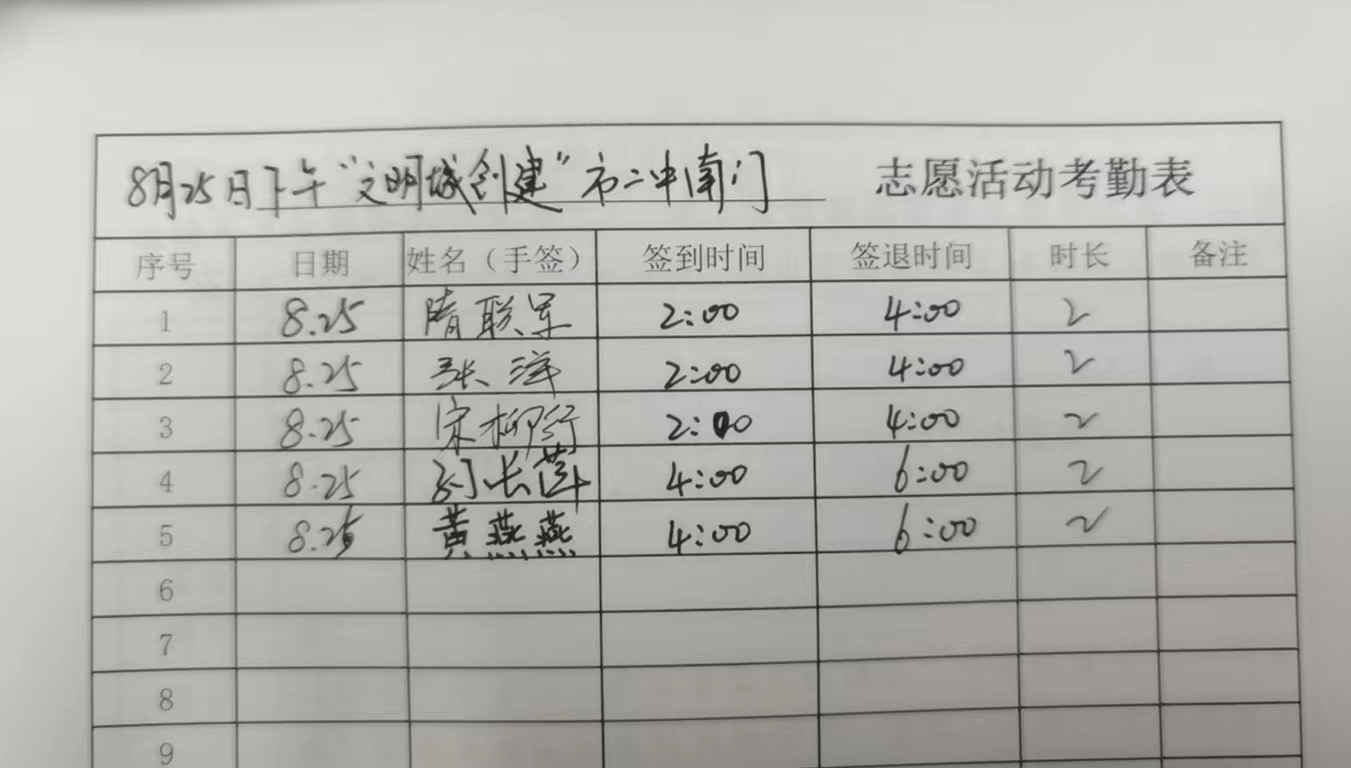 8月25日下午“文明城创建”市二中南门 志愿活动考勤表
序号 日期 姓名（手签） 签到时间 签退时间 时长 备注
1 8.25 隋联军 2:00 4:00 2
2 8.25 张洋 2:00 4:00 2
3 8.25 宋柳衍 2:00 4:00 2
4 8.25 长莲 4:00 6:00 2
5 8.25 黄燕燕 4:00 6:00 2
6
7
8
9